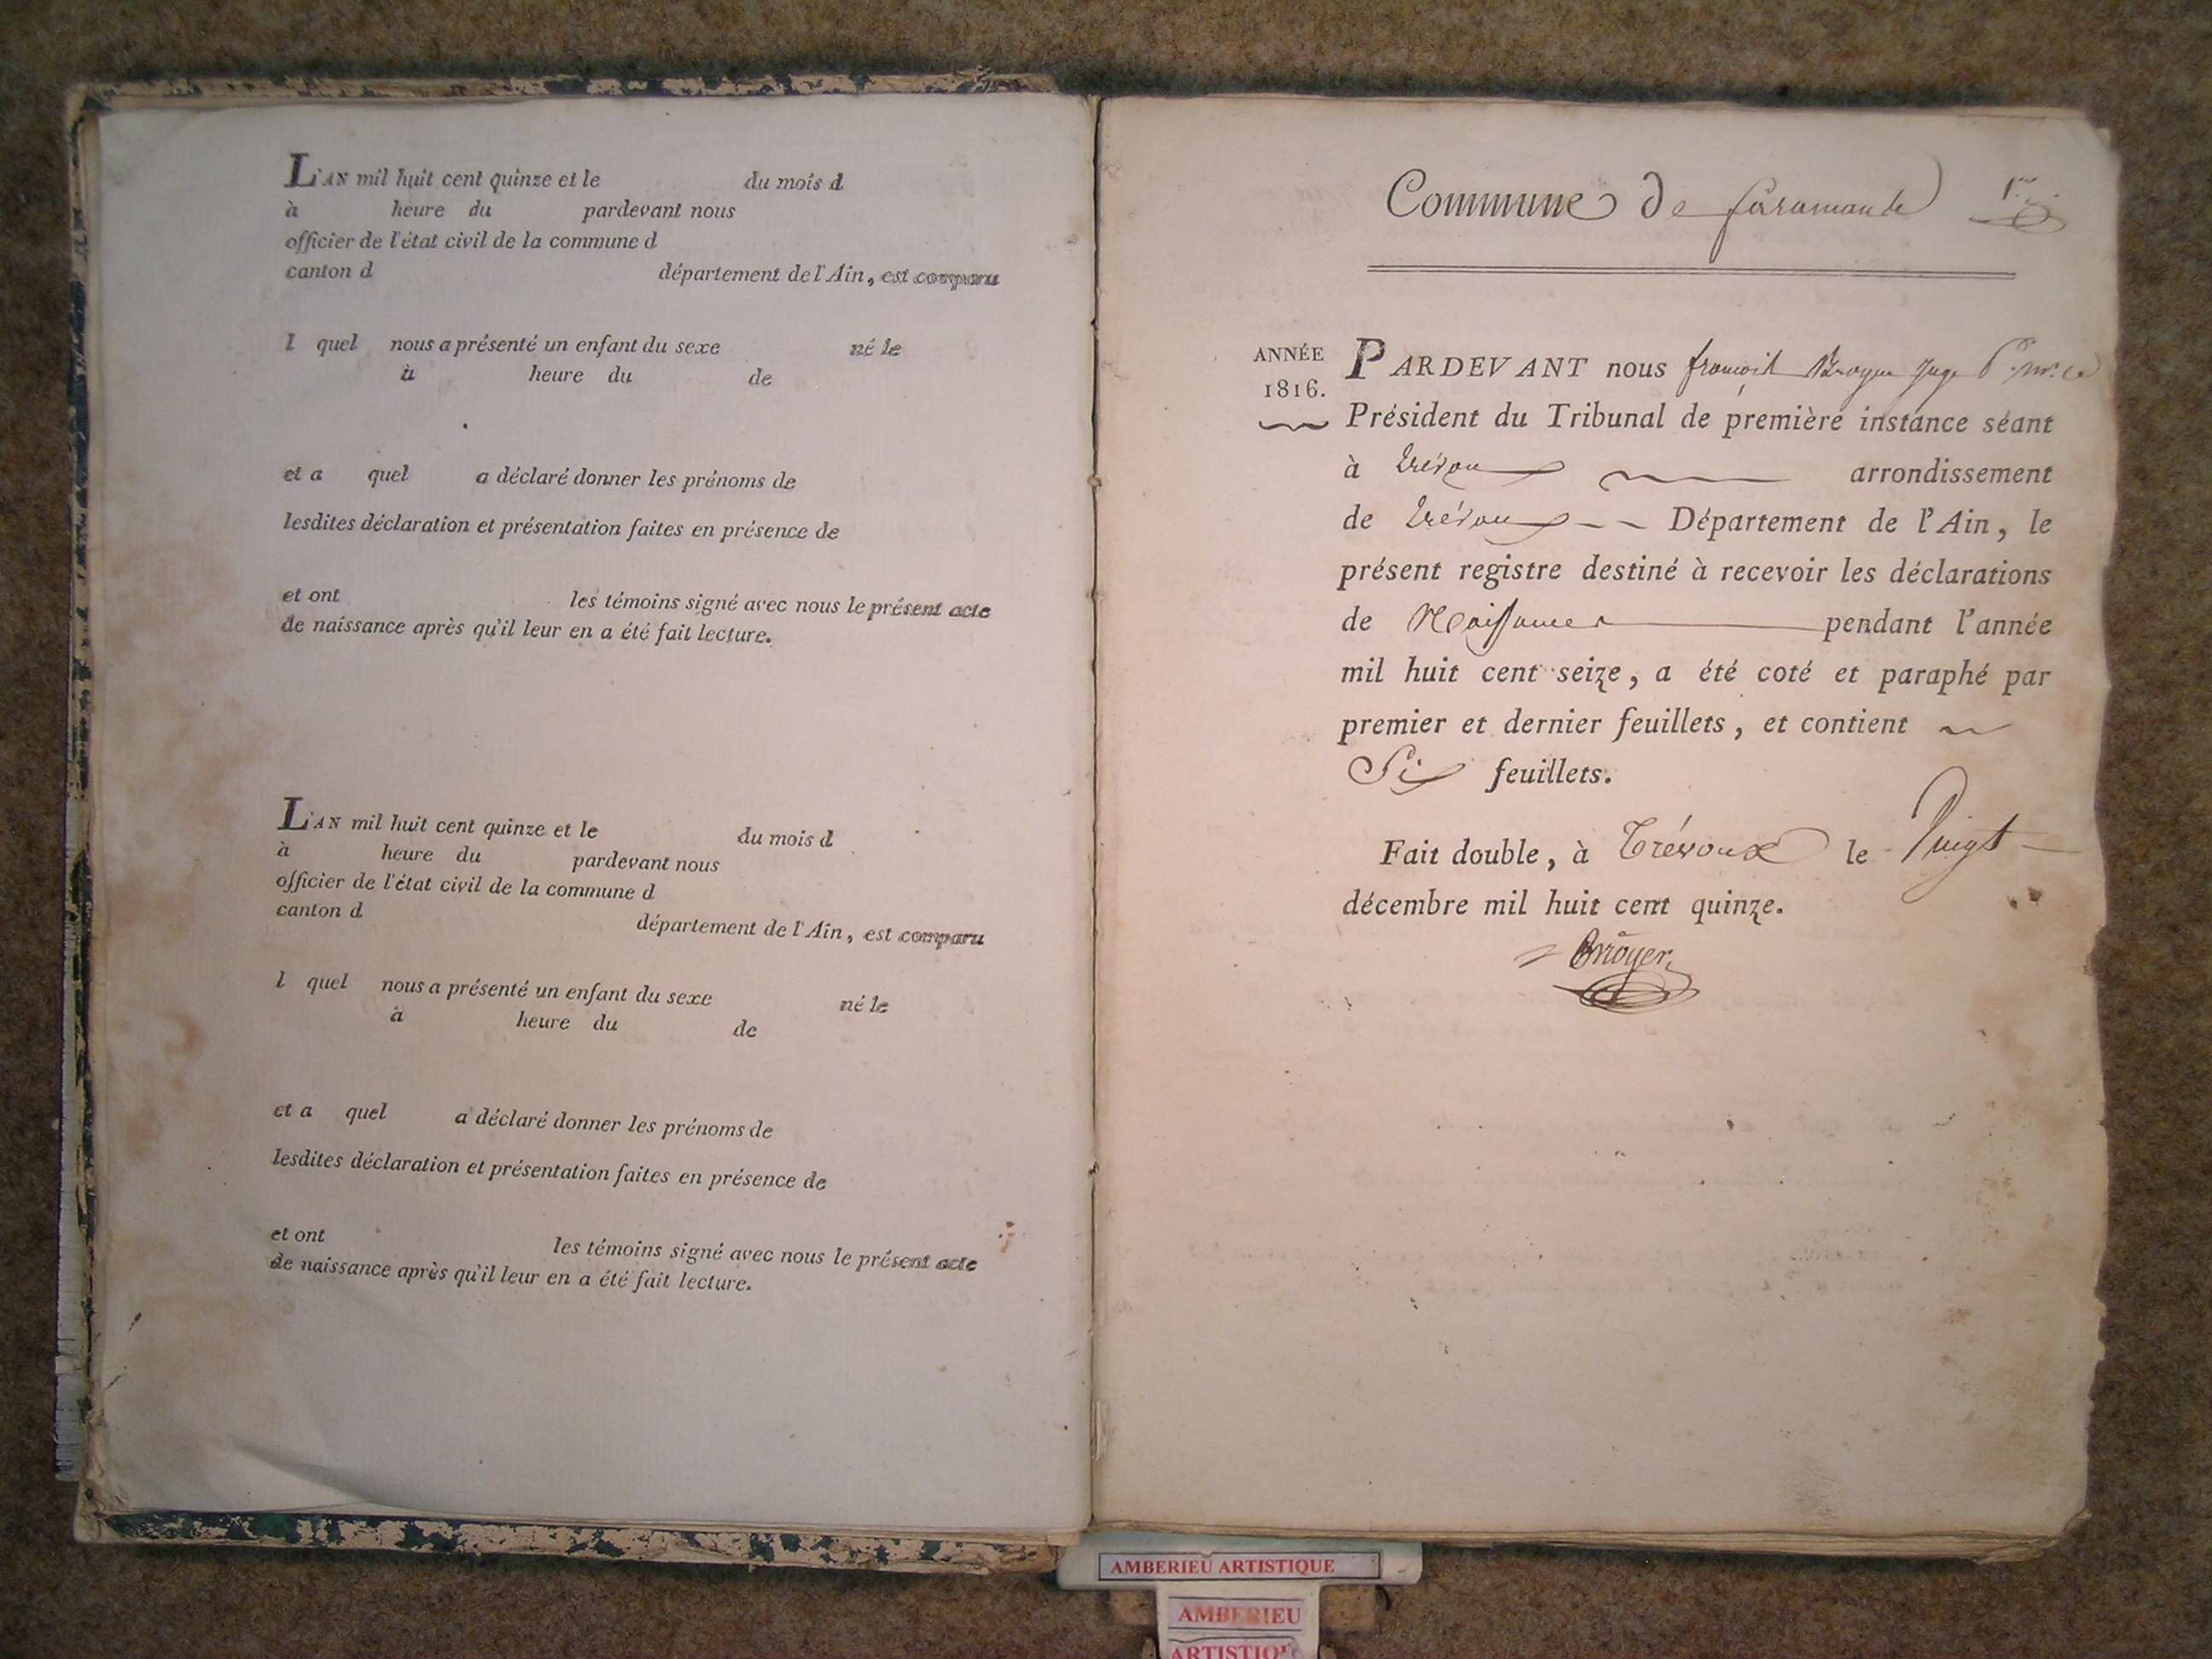 L'AN mil huit cent quinze et le du mois d
à heure du pardevant nous
officier de l'état civil de la commune d
canton d département de l'Ain, est comparu
l quel nous a présenté un enfant du sexe né le
à heure du de
et a quel a déclaré donner les prénoms de
lesdites déclaration et présentation faites en présence de
et ont les témoins signé avec nous le présent acte
de naissance après qu'il leur en a été fait lecture.
L'AN mil huit cent quinze et le du mois d
à heure du pardevant nous
officier de l'état civil de la commune d
canton d département de l'Ain, est comparu
l quel nous a présenté un enfant du sexe né le
à heure du de
et a quel a déclaré donner les prénoms de
lesdites déclaration et présentation faites en présence de
et ont les témoins signé avec nous le présent acte
de naissance après qu'il leur en a été fait lecture.
Commune de faramante 1er
ANNÉE
1816.
PARDEVANT nous françois Broyer Juge
Président du Tribunal de première instance séant
à trévoux arrondissement
de trévoux Département de l'Ain, le
présent registre destiné à recevoir les déclarations
de Naissances pendant l'année
mil huit cent seize, a été coté et paraphé par
premier et dernier feuillets, et contient
Six feuillets.
Fait double, à Trévoux le Vingt
décembre mil huit cent quinze.
Broyer
AMBERIEU ARTISTIQUE
AMBERIEU
ARTISTIQUE